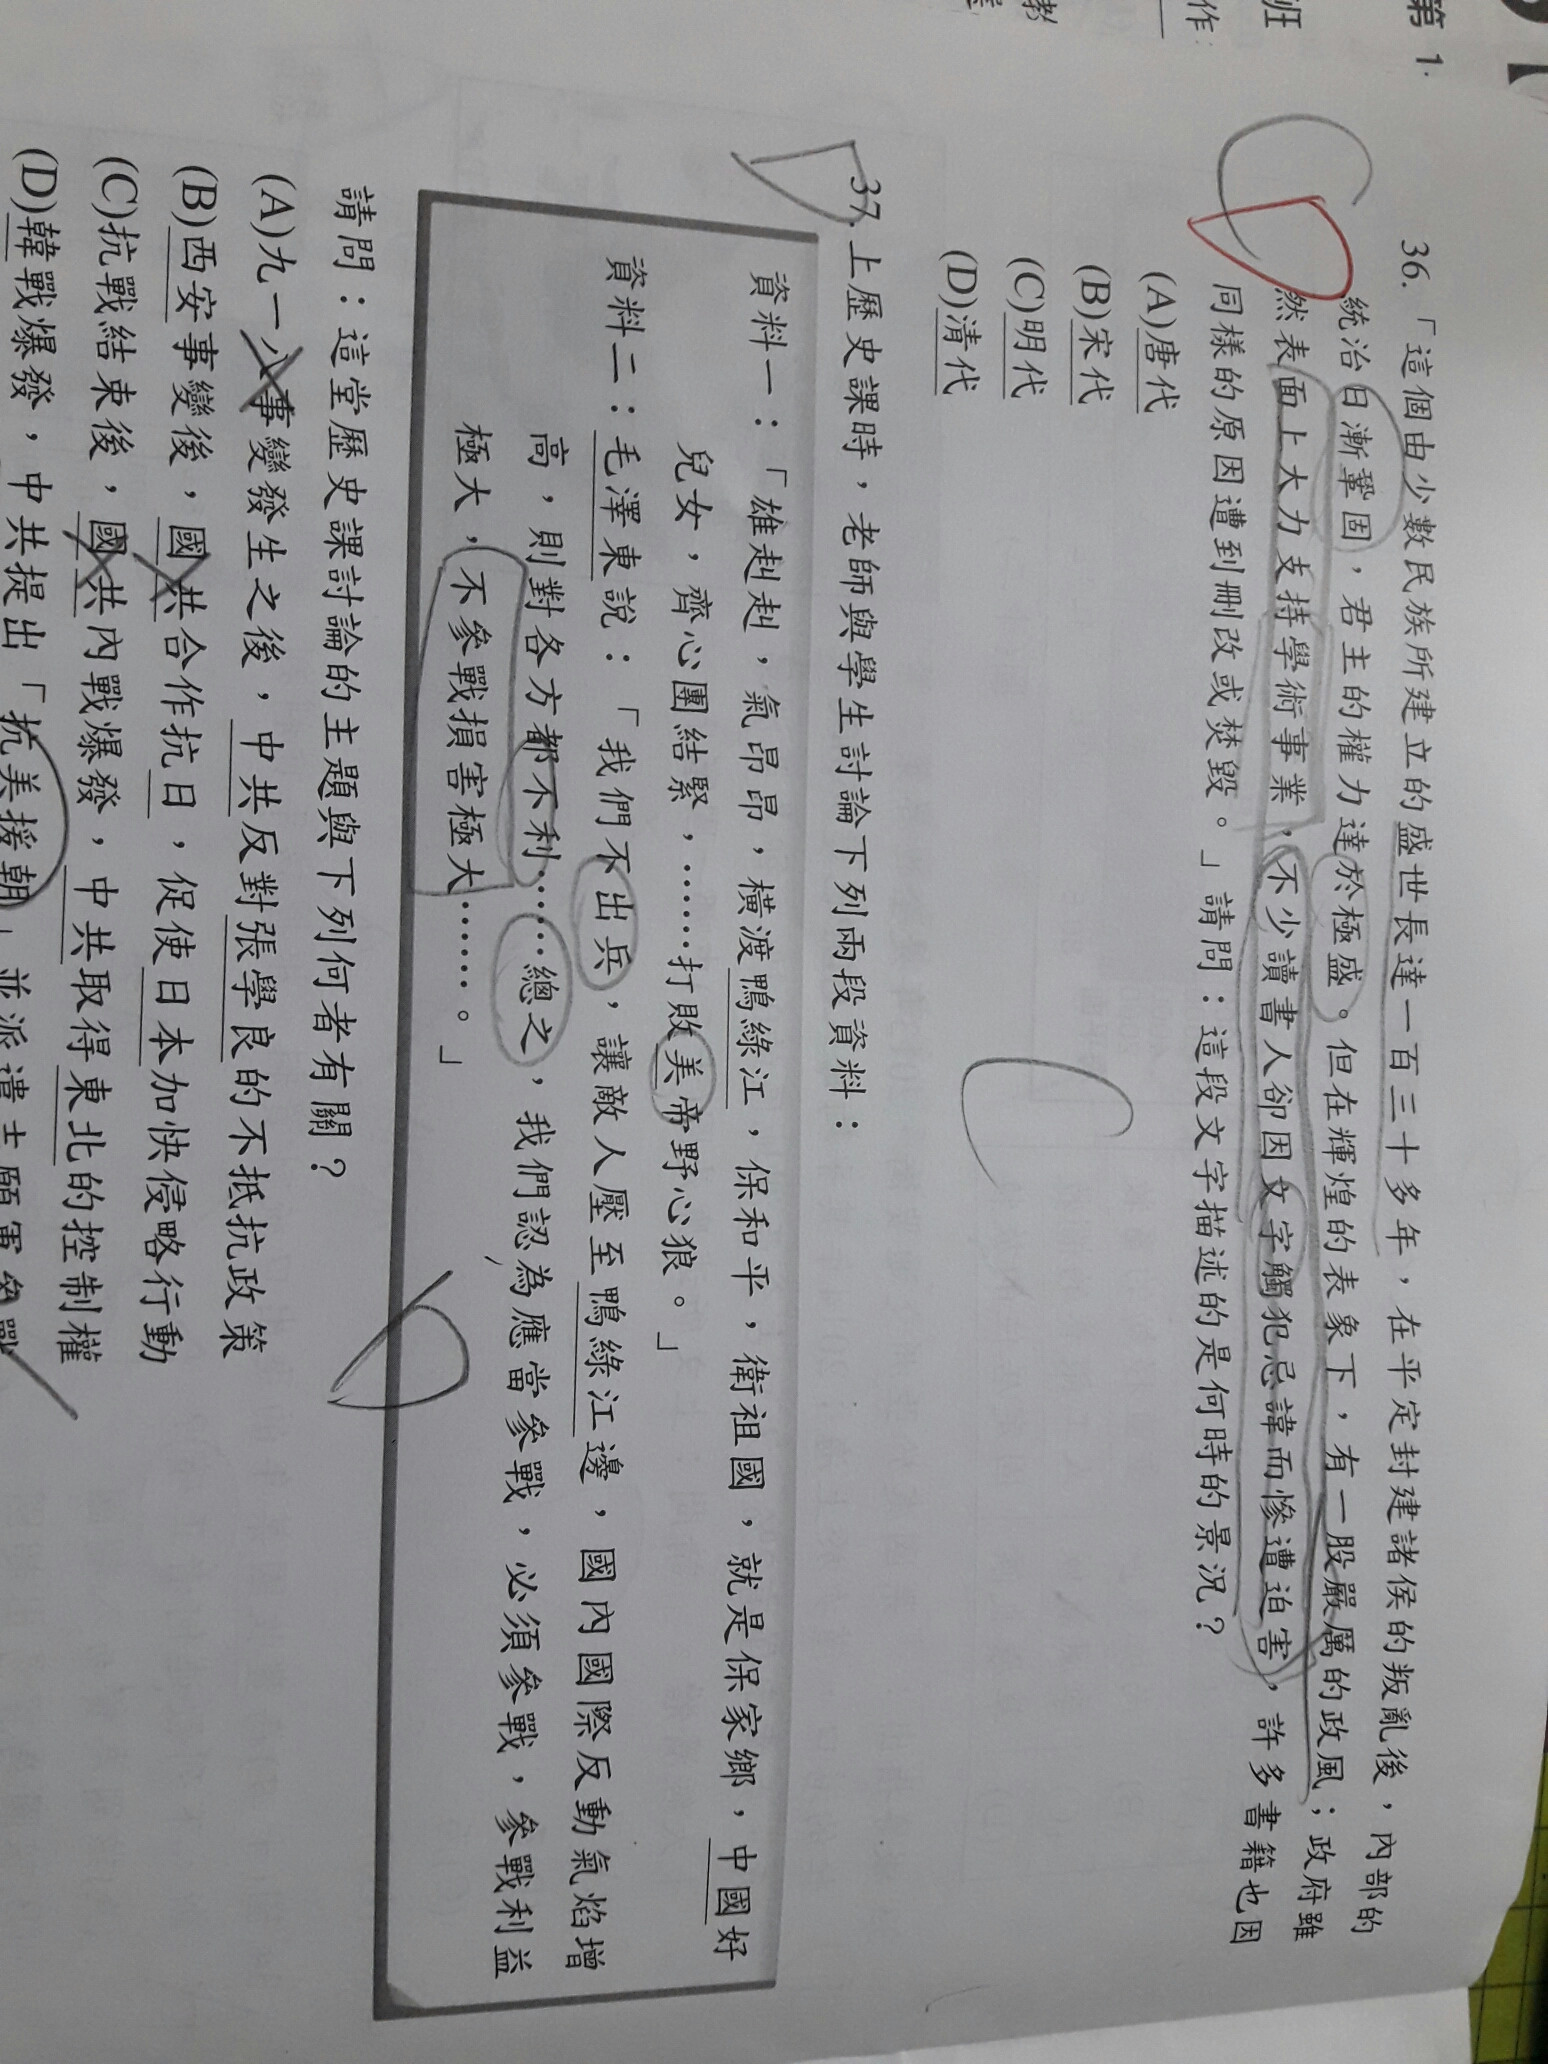 第 1.
班
作:
教
36.「這個由少數民族所建立的盛世長達一百三十多年，在平定封建諸侯的叛亂後，內部的
統治日漸鞏固，君主的權力達於極盛。但在輝煌的表象下，有一股嚴厲的政風；政府雖
然表面上大力支持學術事業，不少讀書人卻因文字觸犯忌諱而慘遭迫害，許多書籍也因
同樣的原因遭到刪改或焚毀。」請問：這段文字描述的是何時的景況？
(A)唐代
(B)宋代
(C)明代
(D)清代
C
D
C
37.上歷史課時，老師與學生討論下列兩段資料：
D
資料一：「雄赳赳，氣昂昂，橫渡鴨綠江，保和平，衛祖國，就是保家鄉，中國好
兒女，齊心團結緊，……打敗美帝野心狼。」
資料二：毛澤東說：「我們不出兵，讓敵人壓至鴨綠江邊，國內國際反動氣焰增
高，則對各方都不利……總之，我們認為應當參戰，必須參戰，參戰利益
極大，不參戰損害極大……。」
D
請問：這堂歷史課討論的主題與下列何者有關？
(A)九一八事變發生之後，中共反對張學良的不抵抗政策
(B)西安事變後，國共合作抗日，促使日本加快侵略行動
(C)抗戰結束後，國共內戰爆發，中共取得東北的控制權
(D)韓戰爆發，中共提出「抗美援朝」並派遣志願軍參戰